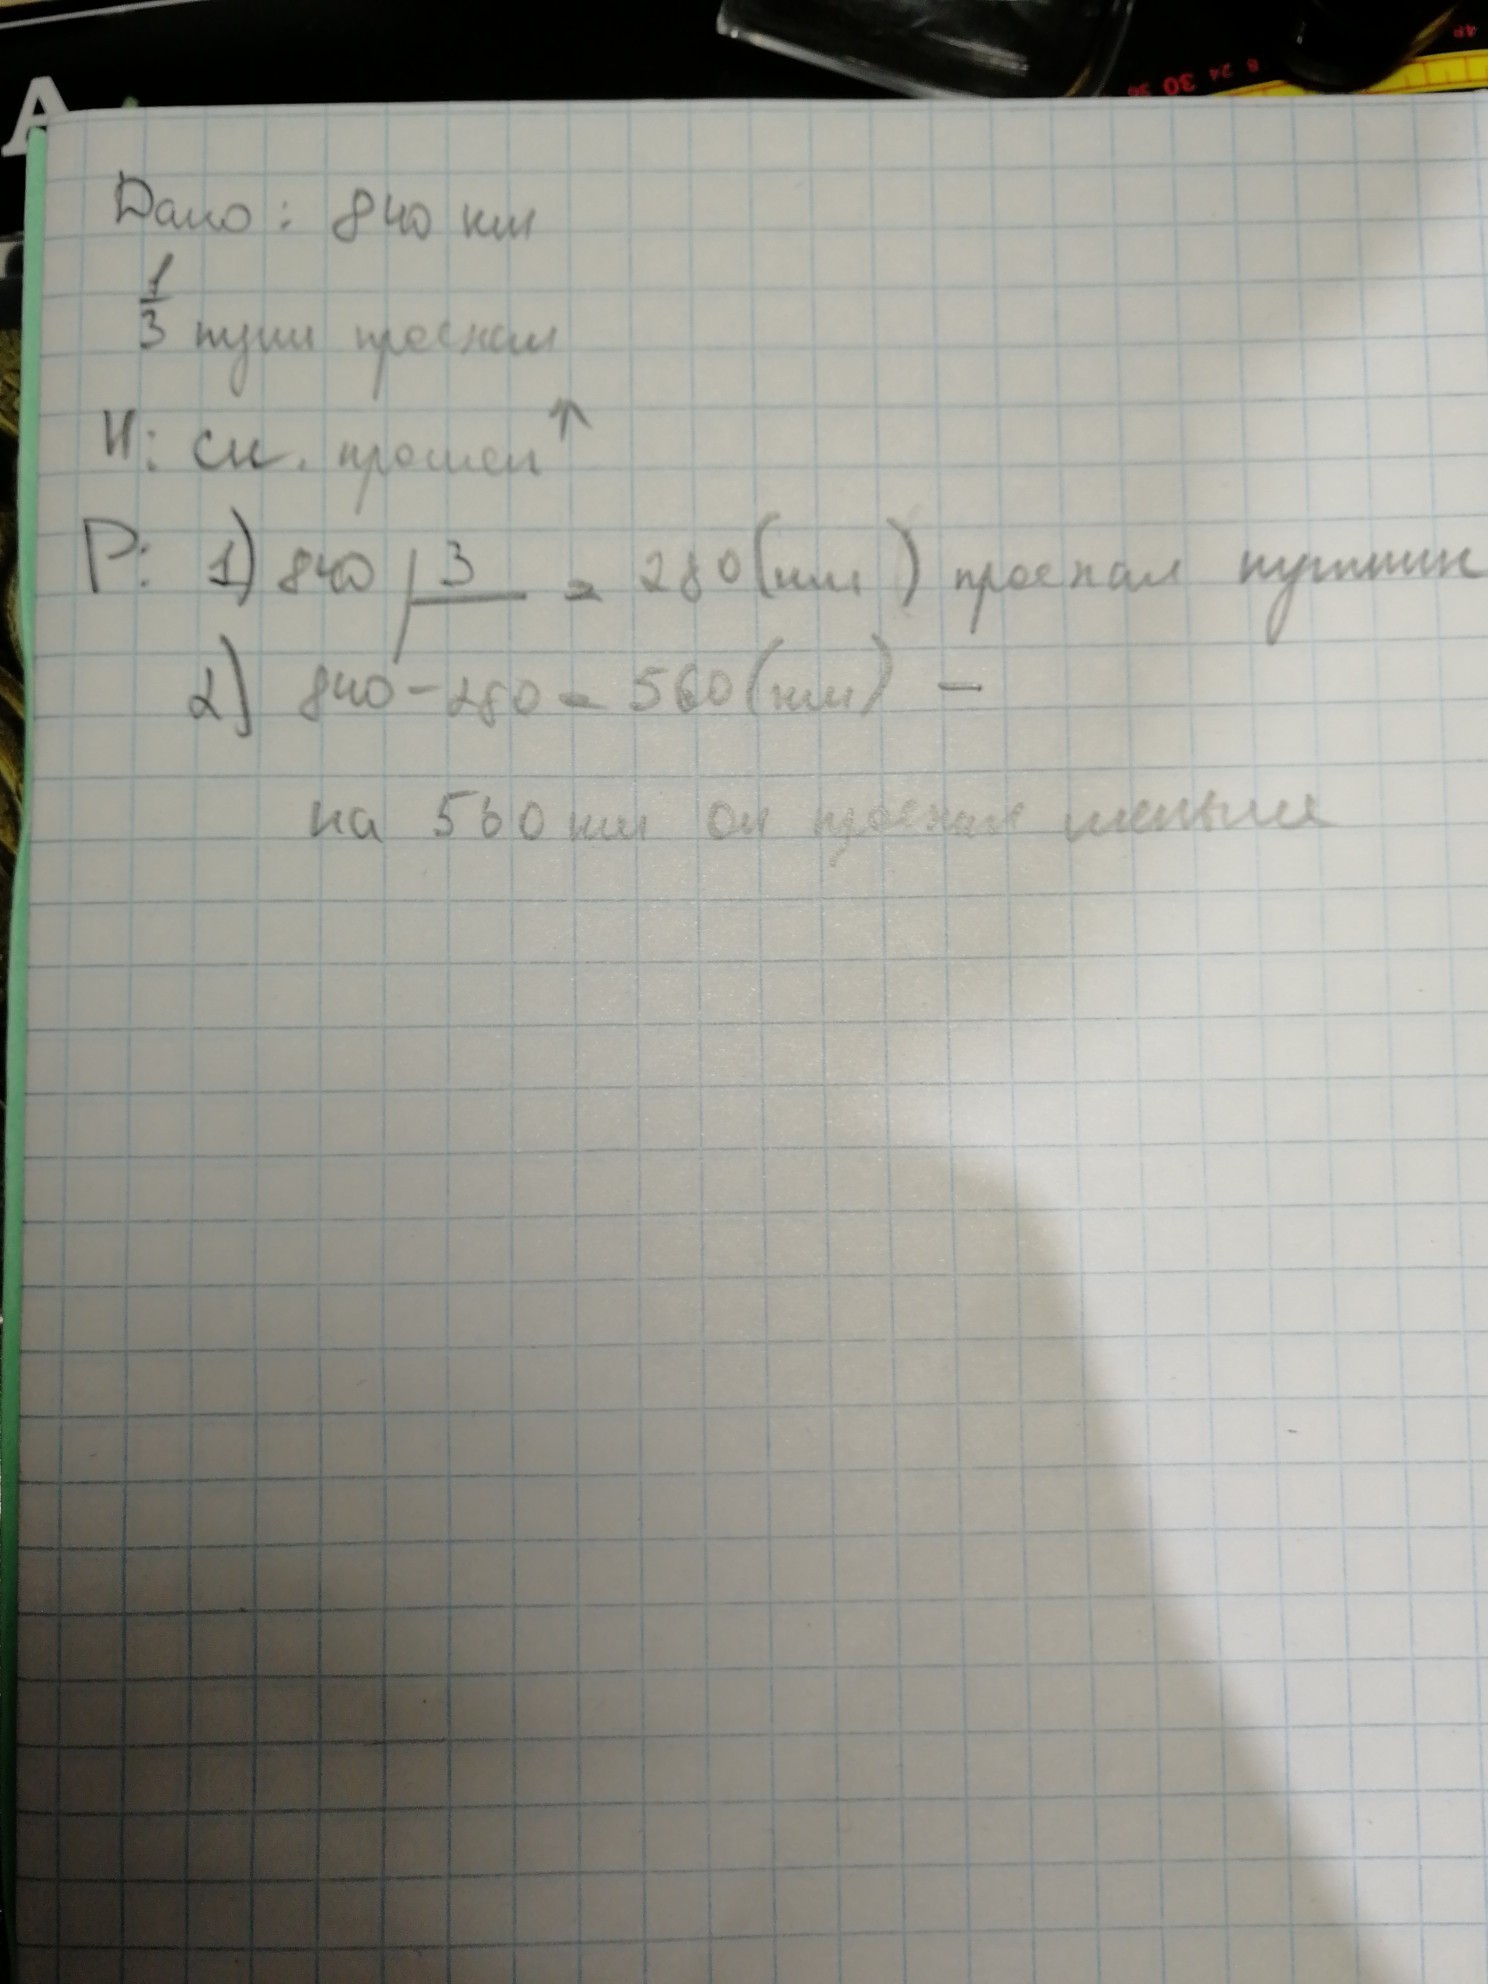 A
36 30 24 8
Дано: 840 км
1/3 пути проехал
Н: ск. проехал ↑
Р: 1) 840 | 3 = 280 (км) проехал путник
2) 840 - 280 = 560 (км) -
на 560 км он проехал меньше